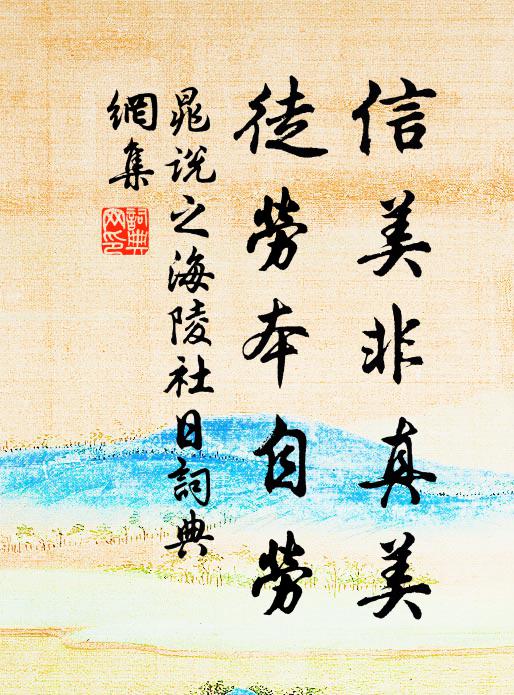 信美非真美
徒勞本自勞
晁說之海陵社日詞典
網集
詞典
网印